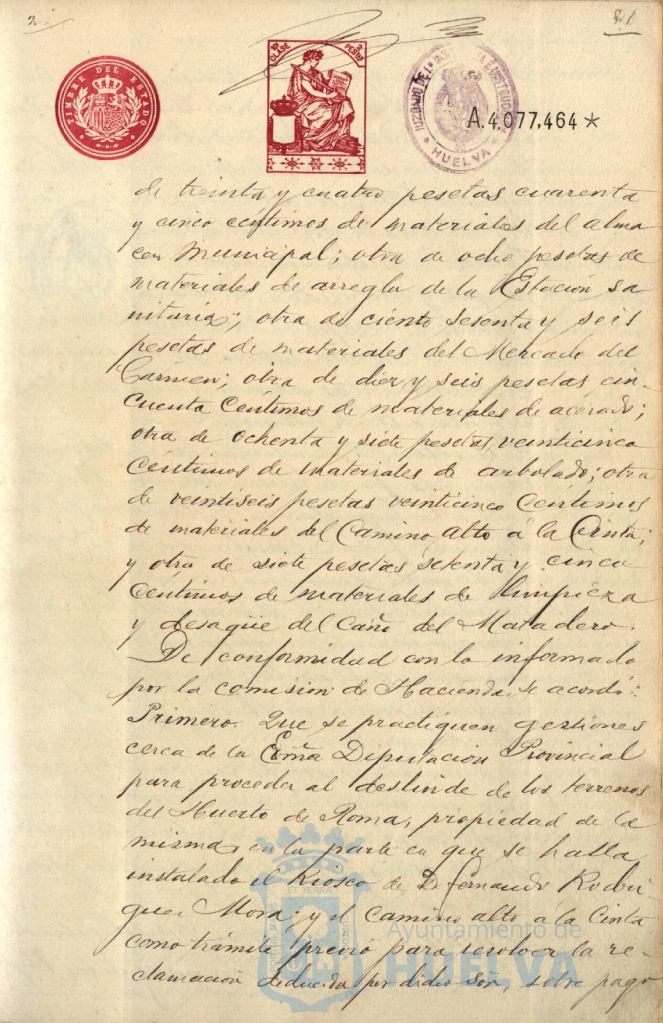 21
TIMBRE DEL ESTADO
10ª CLASE
2 PESETAS
JUZGADO DE 1ª INSTANCIA E INSTRUCCION
HUELVA
A.4.077,464*
de treinta y cuatro pesetas cuarenta
y cinco centimos de materiales del alma
cen Municipal; otra de ocho pesetas de
materiales de arreglo de la Estación sa
nitaria; otra de ciento sesenta y seis
pesetas de materiales del Mercado del
Carmen; otra de diez y seis pesetas cin-
cuenta centimos de materiales de acerado;
otra de ochenta y siete pesetas veinticinco
centimos de materiales de arbolado; otra
de veintiseis pesetas veinticinco centimos
de materiales del Camino alto á la Cinta;
y otra de siete pesetas setenta y cinco
centimos de materiales de limpieza
y desagüe del Caño del Matadero.
De conformidad con lo informado
por la comision de Hacienda se acordó:
Primero. Que se practiquen gestiones
cerca de la Exma Diputacion Provincial
para proceder al deslinde de los terrenos
del Huerto de Roma, propiedad de la
misma en la parte en que se halla
instalado el Kiosco de D. Fernando Rodri
guez Mora y el camino alto á la Cinta
como trámite previo para resolver la re-
clamación deducida por dicho Sor, sobre pago
Ayuntamiento de
HUELVA